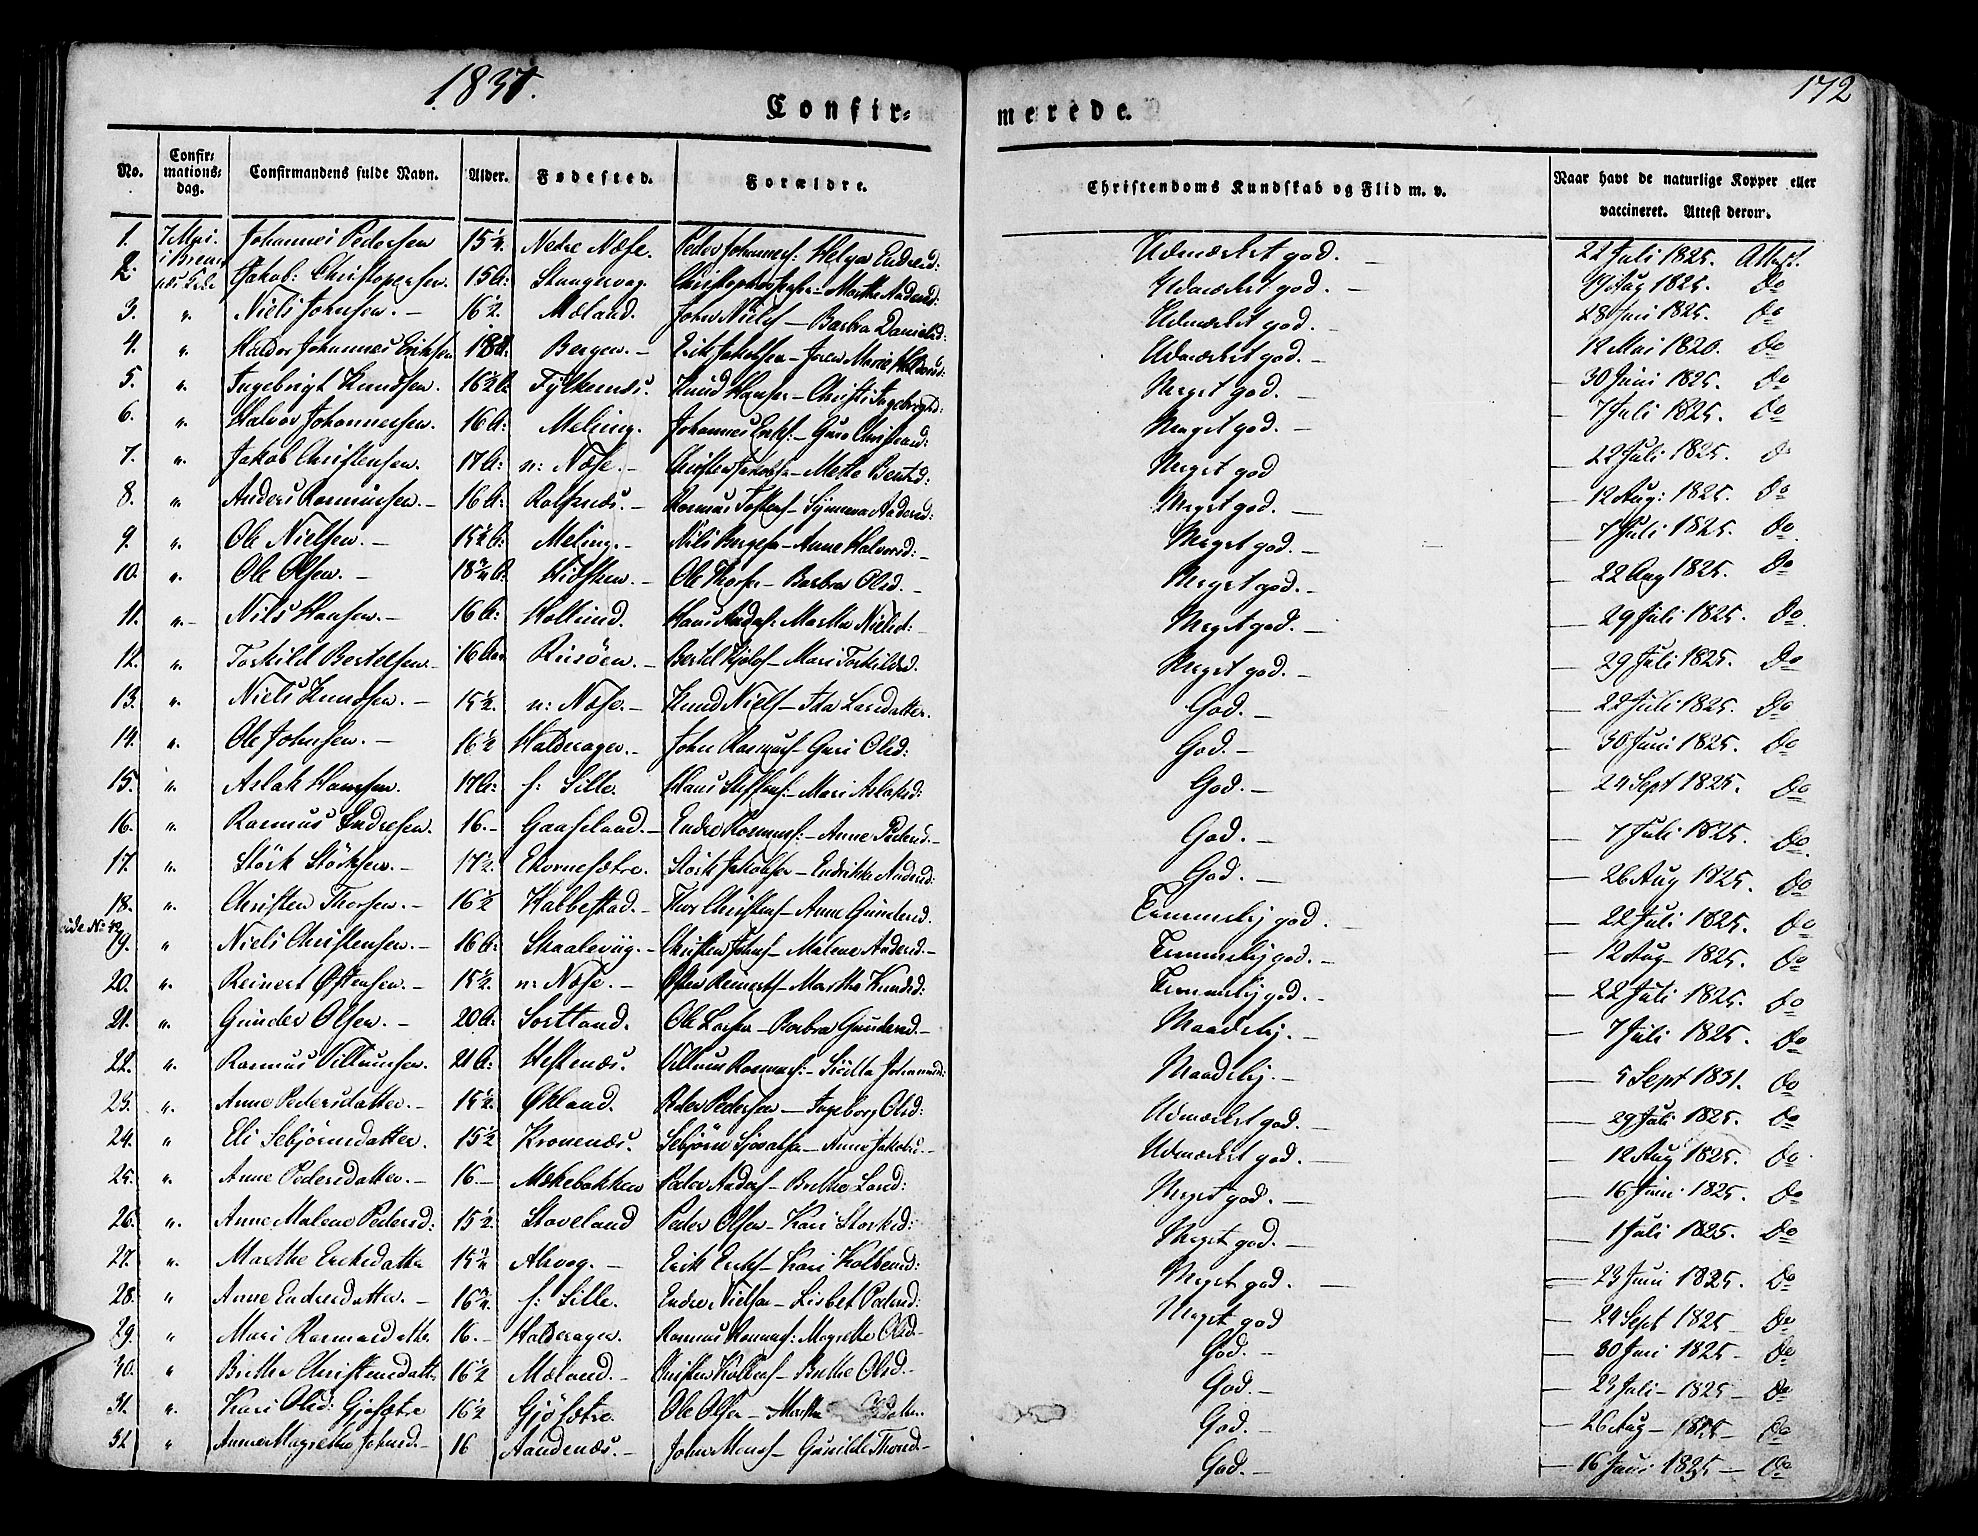 1837.
172
Confir-
merede.
No.
Confir-
mations-
dag.
Confirmandens fulde Navn.
Alder.
Fødested.
Forældre.
Christendoms Kundskab og Flid m. v.
Naar havt de naturlige Kopper eller
vaccineret. Attest derom.
1. 7 Mai. Johannes Pedersen 15½. Nedre Næse. Peder Johannes: Helga Endred: Udmærket god. — 22 Juli 1825. Attest.
2. Jakob Christophersen. 15 A: Stangevaag. Marthe Andersd: Udmærket god. — 19 Aug 1825. Do
3. " Niels Johnsen. — 16½. Mæland. John Niels — Barbra Danielsd: Udmærket god. — 28 Juni 1825. Do
4. " Haldor Johannes Eriksen 18 A: Bergen. — Erik Jakobsen — Udmærket god. — 12 Mai 1820. Do
5. " Ingebrigt Knudsen. 16½ A: Fylkesnæs. Knud Hansen — Christi Ingebrigtsd: Meget god. — 30 Juni 1825. Do
6. " Halvor Johannessen. 16 A: Meling. Johannes Eriks: — Meget god. — 7 Juli 1825. Do
7. " Jakob Christensen. 17 A: n: Næse. — Christen Jakobsen — Mette Bentsd: Meget god — 22 Juli 1825. Do
8. " Anders Rasmussen. — 16 A: Rolfsnæs. — Rasmus — Synneva Andersd: Meget god. — 12 Aug: 1825. Do
9. " Ole Nielsen. — 15½ A: Meling. — Nils — Anne Halvorsd: — Meget god. — 7 Juli 1825. Do
10. " Ole Olsen. — Hidsken. — Ole — Barbra Olsd. — Meget god. — 22 Aug 1825. Do
11. " Nils Hansen. — 16 A: Hollund. Hans Martha Nielsd: — Meget god. — 29 Juli 1825. Do
12. " Torkild Bertelsen — 16 Aar Rusøen. — Bertel — Mari Torkildsd. Meget god. — 29 Juli 1825. Do
13. " Niels Knudsen. — 15½. n: Næse. — Knud Niels — Ida Larsdatter. God. — 22 Juli 1825. Do
14. " Ole Johnsen. — 16½ Halderager. — John Rasmus — Guri Olsd: God. — 30 Juni 1825. Do
15. " Aslak Hansen. 17 A: f: Lille. Hans Steffens: — Mari Aslaksd: God. — 24 Sept 1825. Do
16. " Rasmus Endresen. 16. — Gaaseland. — Endre Rasmuss: — Anne Pedersd. — God. — 7 Juli 1825. Do.
17. " Størk Størksen. — 17½. Ekornesætre. Størk Jakobsen — Endrikke Andersd: God. — 26 Aug 1825. Do
18. " Christen Thorsen. — 16½ Habbestad. — Thor Christens — Anne Gundersd. Temmelig god. — 22 Juli 1825. Do
vide No 42
19. " Niels Christensen. — 16 A: Skaaleviig. — Christen Johns — Malene Andersd — Temmelig god. — 12 Aug 1825. Do
20. " Reinert Østensen. — 15½. n: Næse. — Østen Reinerts — Martha Knudsd: Temmelig god. — 22 Juli 1825. Do
21. " Gunder Olsen. — 20 A: Sortland. Ole Larsen — Barbra Gundersd. — Maadelig. — 7 Juli 1825. Do
22. " Rasmus Villumsen. 21 A: Hestenæs. Villum Rasmuss: — Johannesd: Maadelig. — 5 Sept 1831. Do
23. " Anne Pedersdatter. — 15½. Økland. Peder Pedersen — Ingeborg Olsd: Udmærket god. — 29 Juli 1825. Do
24. " Eli Sebjørnsdatter. 15½ Kronenæs. Sebjørn — Anne Jakobsd. — Udmærket god. — 12 Aug 1825. Do.
25. " Anne Pedersdatter. — 16. — Mækebakken Peder Anders — Brithe Larsd: Meget god. — 16 Juni 1825. Do
26. " Anne Malene Pedersd: 15½. Stoveland Peder Olsen — Kari Størksd: Meget god. — 1 Juli 1825. Do
27. " Marthe Eriksdatter Alvag. — Erik Eriks — Kari Kolbensd: Meget god. — 23 Juni 1825. Do
28. " Anne Endresdatter. — f: Lille. Endre Nielsen — Lisbet Pedersd: Meget god — 24 Sept 1825 — Do
29. " Mari Rasmusdatter 16. — Halderager. Rasmus Rasmuss: Magrethe Olsd — God. — 30 Juni 1825 — Do
30. " Brithe Christensdatter 16½ Mæland. — Christen Kolbens — Brithe Olsd. — God. — 23 Juli — 1825 — Do
31. " Kari Olsd: Gjøsætre 16½ Gjøsætre. Ole Olsen — Marthe God. — 26 Aug — 1825 — Do
32 " Anne Magrethe Johnsd. — 16 Aandenæs. — John Mons — Gunilde Thorsd — God. — 16 Juni 1825 — Do